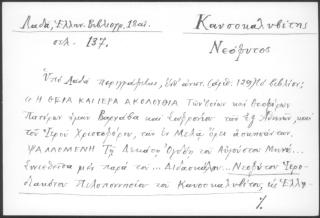 Λαδά, Ἑλλην. Βιβλιογρ. 18 αἰ.
σελ. 137.
Καυσοκαλυβίτης
Νεόφυτος
Ὑπὸ Λαδᾶ περιγράφεται, (ἀριθ. 129) τὸ βιβλίον:
"Η ΘΕΙΑ ΚΑΙ ΙΕΡΑ ΑΚΟΛΟΥΘΙΑ Τῶν ὁσίων καὶ θεοφόρων
Πατέρων ἡμῶν Βαρνάβα καὶ Σωφρονίου τῶν ἐξ Ἀθηνῶν, καὶ
τοῦ Ἱεροῦ Χριστοφόρου, τῶν ἐν Μελᾷ ὄρει ἀσκησάντων,
ΨΑΛΛΟΜΕΝΗ Τῇ Ὀγδόῃ τοῦ Αὐγούστου Μηνὸς...
Συντεθεῖσα μὲν παρὰ τοῦ... Διδασκάλου... Νεοφύτου Ἱερο-
διακόνου Πελοποννησίου τοῦ Καυσοκαλυβίτου, ὡς Ἑλλη-
./.